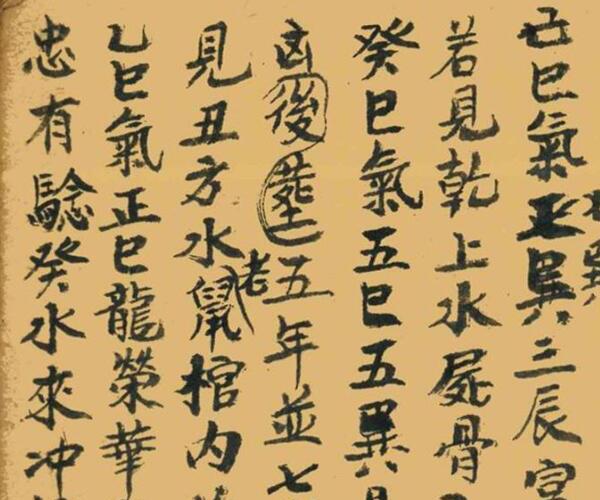 巳氣正巽三辰宮
若見乾上水屍骨
癸巳氣五巳五巽
凶後塟五年並七
見丑方水老鼠棺內
乙巳氣正巳龍榮華
忠有騐癸水來冲